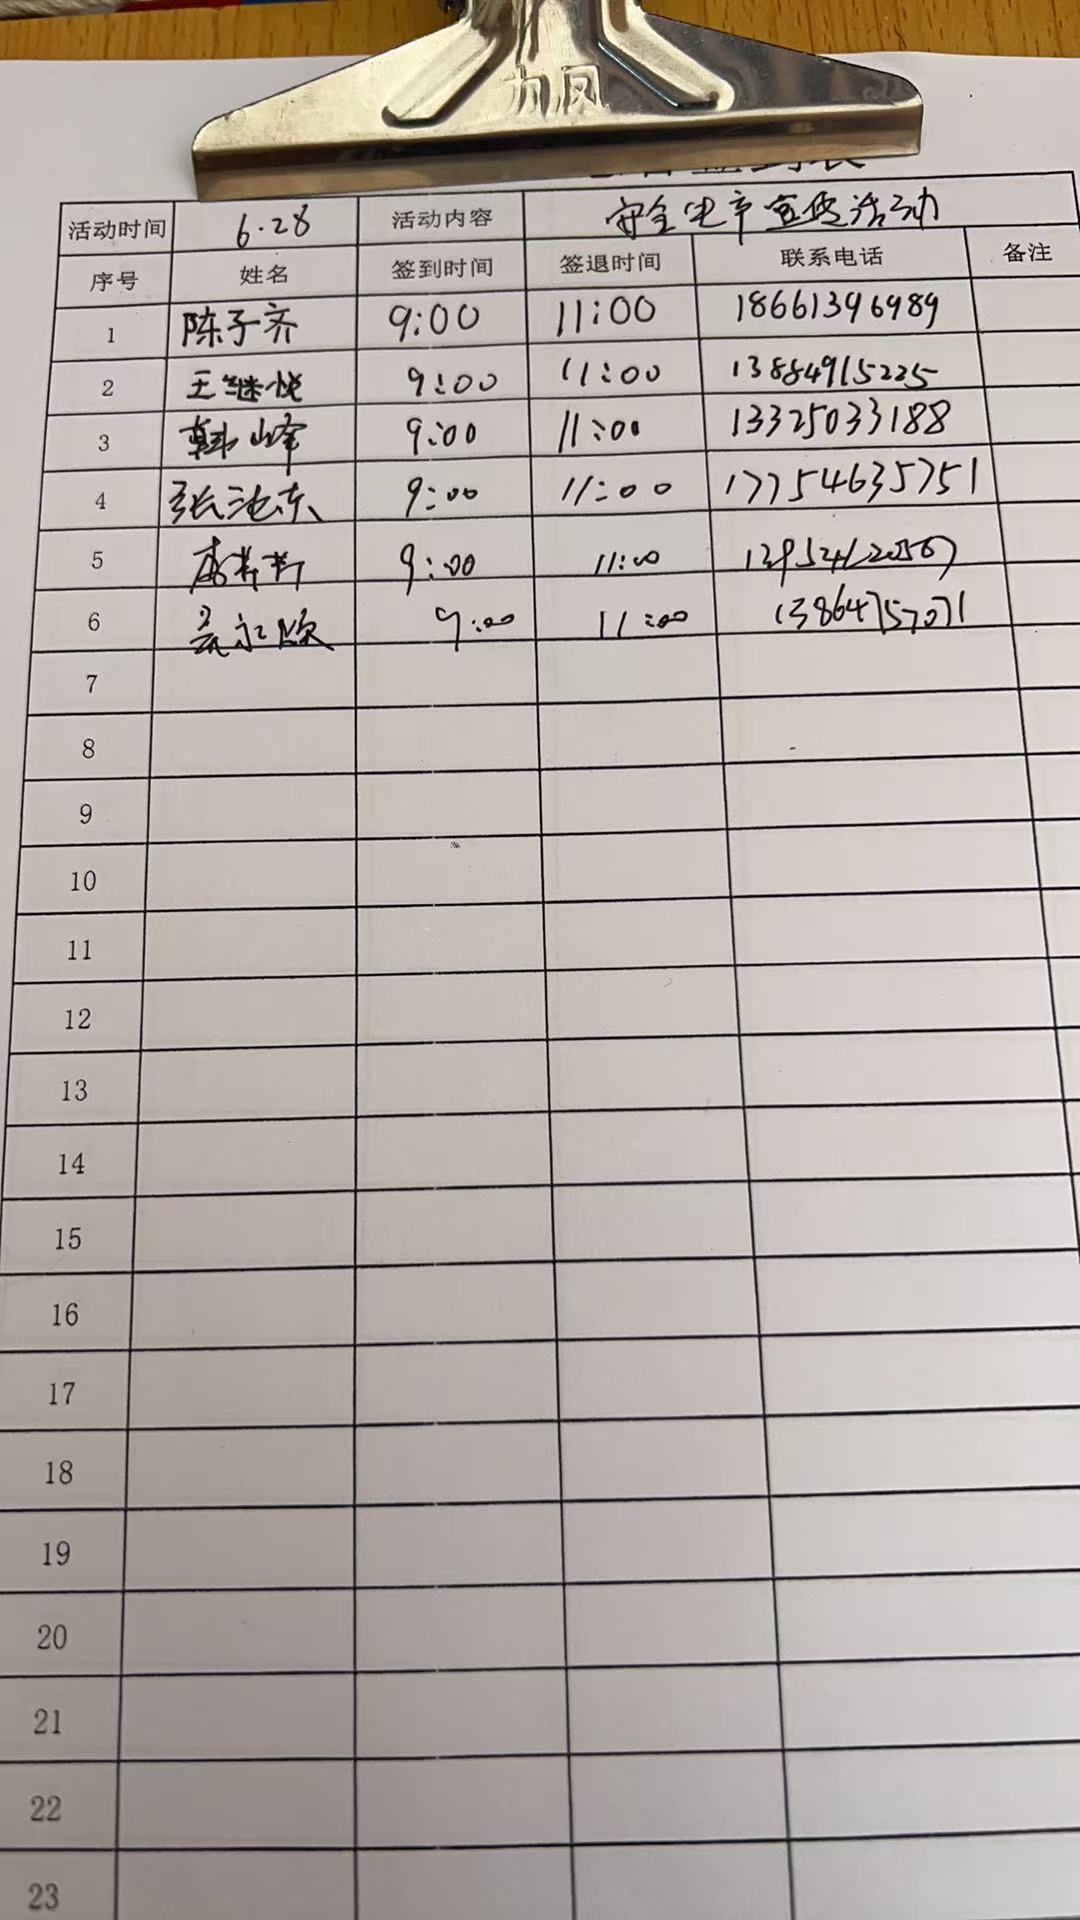 力风
活动时间 6.28 活动内容 安全生产宣传活动
序号 姓名 签到时间 签退时间 联系电话 备注
1 陈子齐 9:00 11:00 18661396989
2 王继悦 9:00 11:00 13884915225
3 韩峰 9:00 11:00 13325033188
4 张沌东 9:00 11:00 17754635751
5 9:00 11:00
6 9:00 11:00 13864757071
7
8
9
10
11
12
13
14
15
16
17
18
19
20
21
22
23